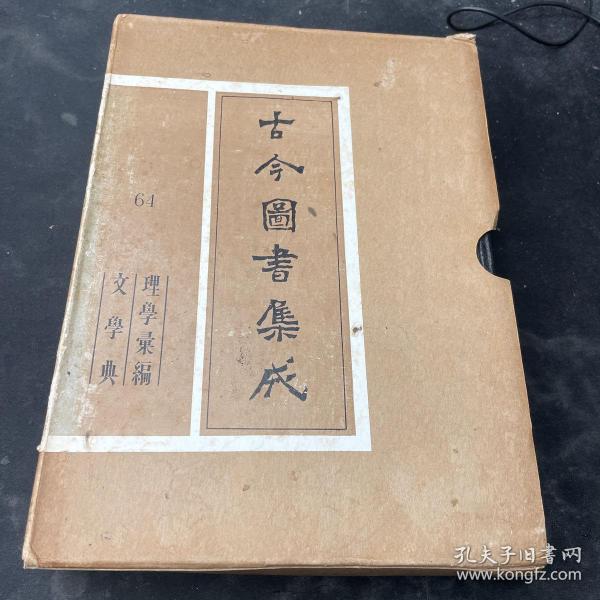 古今圖書集成
64
理學彙編
文學典
孔夫子旧書网
www.kongfz.com